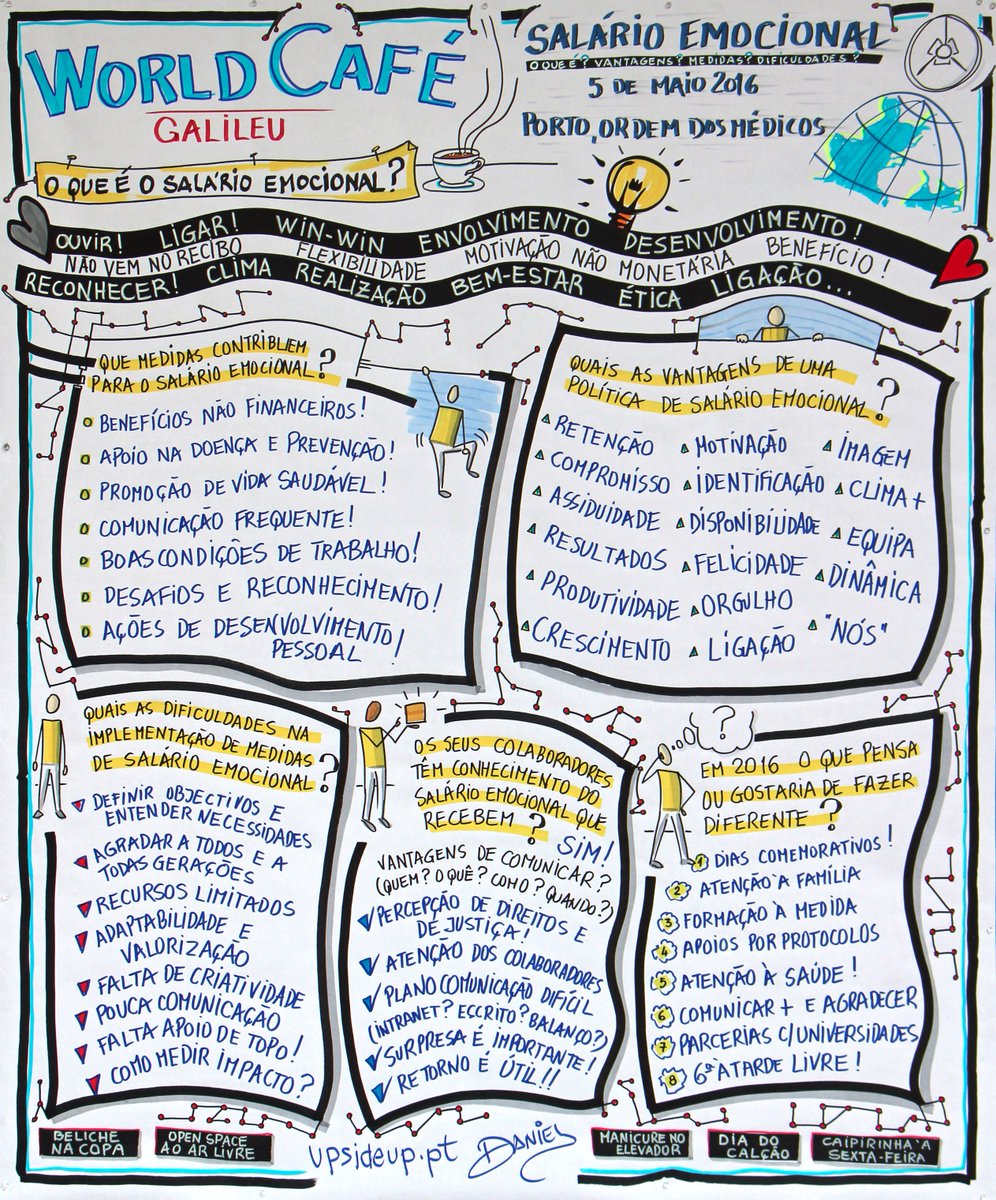 WORLD CAFÉ
GALILEU
SALÁRIO EMOCIONAL
O QUE É? VANTAGENS? MEDIDAS? DIFICULDADES?
5 DE MAIO 2016
PORTO, ORDEM DOS MÉDICOS
O QUE É O SALÁRIO EMOCIONAL?
OUVIR! LIGAR! WIN-WIN ENVOLVIMENTO DESENVOLVIMENTO!
NÃO VEM NO RECIBO FLEXIBILIDADE MOTIVAÇÃO NÃO MONETÁRIA BENEFÍCIO!
RECONHECER! CLIMA REALIZAÇÃO BEM-ESTAR ÉTICA LIGAÇÃO...
QUE MEDIDAS CONTRIBUEM
PARA O SALÁRIO EMOCIONAL?
BENEFÍCIOS NÃO FINANCEIROS!
APOIO NA DOENÇA E PREVENÇÃO!
PROMOÇÃO DE VIDA SAUDÁVEL!
COMUNICAÇÃO FREQUENTE!
BOAS CONDIÇÕES DE TRABALHO!
DESAFIOS E RECONHECIMENTO!
AÇÕES DE DESENVOLVIMENTO
PESSOAL!
QUAIS AS VANTAGENS DE UMA
POLÍTICA DE SALÁRIO EMOCIONAL?
RETENÇÃO
COMPROMISSO
ASSIDUIDADE
RESULTADOS
PRODUTIVIDADE
CRESCIMENTO
MOTIVAÇÃO
IDENTIFICAÇÃO
DISPONIBILIDADE
FELICIDADE
ORGULHO
LIGAÇÃO
IMAGEM
CLIMA +
EQUIPA
DINÂMICA
"NÓS"
QUAIS AS DIFICULDADES NA
IMPLEMENTAÇÃO DE MEDIDAS
DE SALÁRIO EMOCIONAL?
DEFINIR OBJECTIVOS E
ENTENDER NECESSIDADES
AGRADAR A TODOS E A
TODAS GERAÇÕES
RECURSOS LIMITADOS
ADAPTABILIDADE E
VALORIZAÇÃO
FALTA DE CRIATIVIDADE
POUCA COMUNICAÇÃO
FALTA APOIO DE TOPO!
COMO MEDIR IMPACTO?
OS SEUS COLABORADORES
TÊM CONHECIMENTO DO
SALÁRIO EMOCIONAL QUE
RECEBEM?
SIM!
VANTAGENS DE COMUNICAR?
(QUEM? O QUÊ? COMO? QUANDO?)
PERCEPÇÃO DE DIREITOS E
DE JUSTIÇA!
ATENÇÃO DOS COLABORADORES
PLANO COMUNICAÇÃO DIFÍCIL
(INTRANET? ESCRITO? BALANÇO?)
SURPRESA É IMPORTANTE!
RETORNO É ÚTIL!!
?
EM 2016 O QUE PENSA
OU GOSTARIA DE FAZER
DIFERENTE?
1 DIAS COMEMORATIVOS!
2 ATENÇÃO À FAMÍLIA
3 FORMAÇÃO À MEDIDA
4 APOIOS POR PROTOCOLOS
5 ATENÇÃO À SAÚDE!
6 COMUNICAR + E AGRADECER
7 PARCERIAS C/UNIVERSIDADES
8 6ª À TARDE LIVRE!
BELICHE
NA COPA
OPEN SPACE
AO AR LIVRE
upsideup.pt
Daniel
MANICURE NO
ELEVADOR
DIA DO
CALÇÃO
CAIPIRINHA À
SEXTA-FEIRA